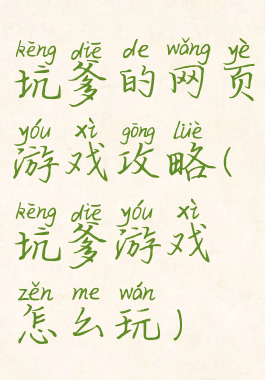 kēng diē de wǎng yè
坑爹的网页
yóu xì gōng lüè
游戏攻略(
kēng diē yóu xì
坑爹游戏
zěn me wán
怎么玩)